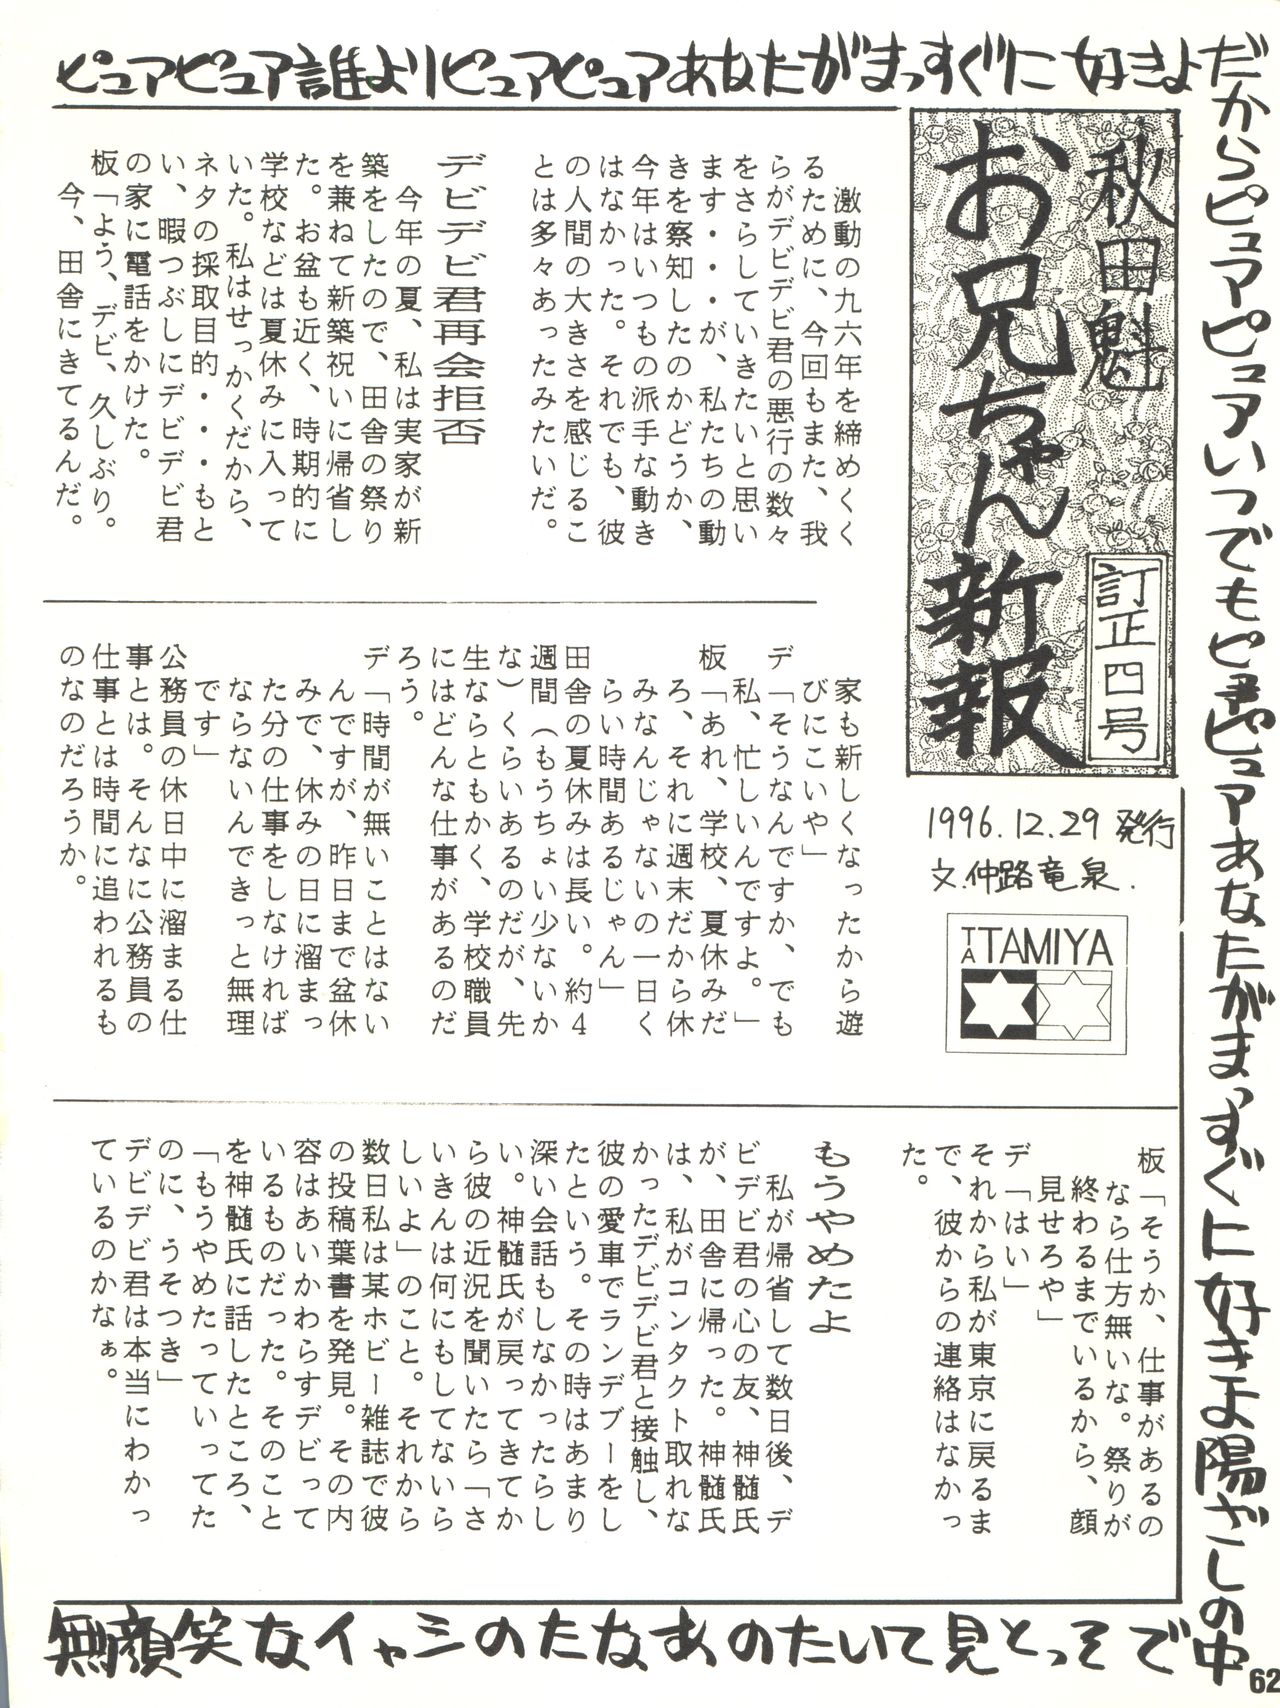 ピュアピュア誰よりピュアピュアあなたがまっすぐに好きよ
だからピュアピュアいつでもピュアピュアあなたがまっすぐに好きよ陽ざしの中
でそっと見ていたのあなたのシャイな笑顔無
秋田魁
お兄ちゃん新報
訂正四号
1996.12.29発行
文.仲路竜泉.
TA TAMIYA
激動の九六年を締めくく
るために、今回もまた、我
らがデビデビ君の悪行の数々
をさらしていきたいと思い
ます・・・が、私たちの動
きを察知したのかどうか、
今年はいつもの派手な動き
はなかった。それでも、彼
の人間の大きさを感じるこ
とは多々あったみたいだ。
デビデビ君再会拒否
今年の夏、私は実家が新
築をしたので、田舎の祭り
を兼ねて新築祝いに帰省し
た。お盆も近く、時期的に
学校などは夏休みに入って
いた。私はせっかくだから、
ネタの採取目的・・・もと
い、暇つぶしにデビデビ君
の家に電話をかけた。
板「よう、デビ、久しぶり。
今、田舎にきてるんだ。
家も新しくなったから遊
びにこいや」
デ「そうなんですか、でも
私、忙しいんですよ。」
板「あれ、学校、夏休みだ
ろ、それに週末だから休
みなんじゃないの一日く
らい時間あるじゃん」
田舎の夏休みは長い。約4
週間（もうちょい少ないか
な）くらいあるのだが、先
生ならともかく、学校職員
にはどんな仕事があるのだ
ろう。
デ「時間が無いことはない
んですが、昨日まで盆休
みで、休みの日に溜まっ
た分の仕事をしなければ
ならないんできっと無理
です」
公務員の休日中に溜まる仕
事とは。そんなに公務員の
仕事とは時間に追われるも
のなのだろうか。
板「そうか、仕事があるの
なら仕方無いな。祭りが
終わるまでいるから、顔
見せろや」
デ「はい」
それから私が東京に戻るま
で、彼からの連絡はなかっ
た。
もうやめたよ
私が帰省して数日後、デ
ビデビ君の心の友、神髄氏
が、田舎に帰った。神髄氏
は、私がコンタクト取れな
かったデビデビ君と接触し、
彼の愛車でランデブーをし
たという。その時はあまり
深い会話もしなかったらし
い。神髄氏が戻ってきてか
ら彼の近況を聞いたら「さ
いきんは何にもしてないら
しいよ」のこと。それから
数日私は某ホビー雑誌で彼
の投稿葉書を発見。その内
容はあいかわらずデビって
いるものだった。そのこと
を神髄氏に話したところ、
「もうやめたっていってた
のに、うそつき」
デビデビ君は本当にわかっ
ているのかなぁ。
62